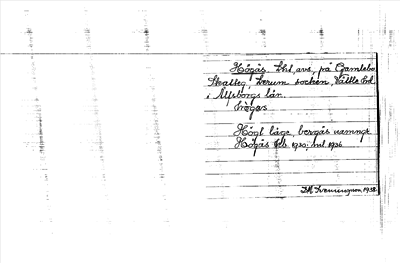 Högås, Lht, avs. på Gamlebo
Skatteg, Lerum socken, Vättle hd.
i Älfsborgs län.
hö̀gås
Högt läge, bergås namngt
Högås Feb. 1920; hul 1926
D.A. Svenungson, 1938